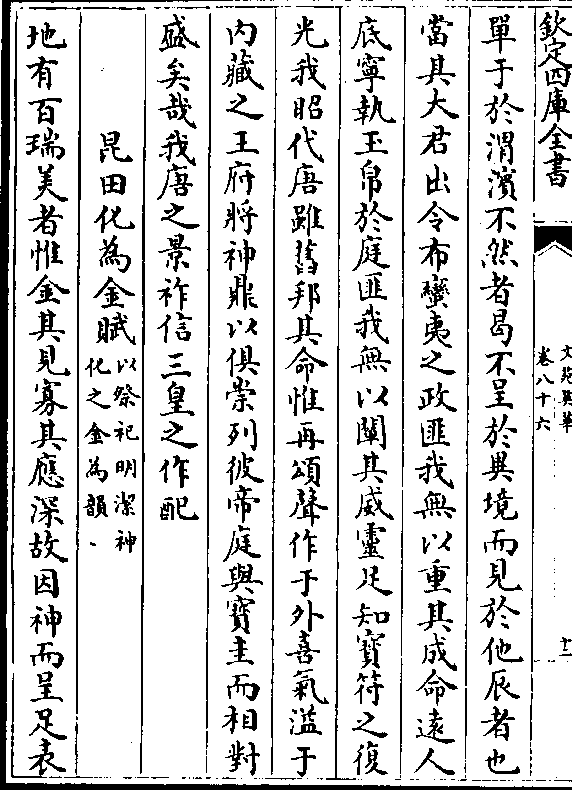 欽定四庫全書
文苑英華
卷八十六
十一
單于於渭濱不然者曷不呈於異境而見於他辰者也
當其大君出令布蠻夷之政匪我無以重其成命遠人
底寧執玉帛於庭匪我無以闡其威靈足知寶符之復
光我昭代唐雖舊邦其命惟再頌聲作于外喜氣溢于
内藏之王府將神鼎以俱崇列彼帝庭與寶圭而相對
盛矣哉我唐之景祚信三皇之作配
昆田化為金賦以祭祀明潔神
化之金為韻、
地有百瑞美者惟金其見寡其應深故因神而呈足表